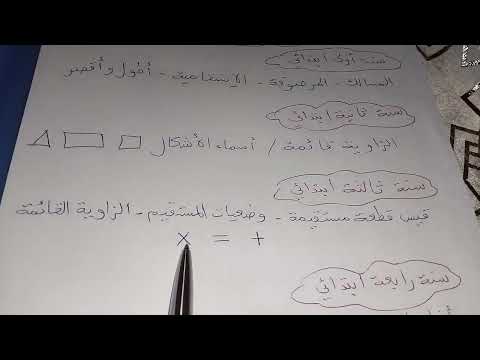 سنة أولى ابتدائي
المسالك - المرصوفة - الإستقامية - أطول وأقصر
سنة ثانية ابتدائي
الزاوية قائمة / أسماء الأشكال
سنة ثالثة ابتدائي
قيس قطعة مستقيمة - وضعيات المستقيم - الزاوية القائمة
+ = x
سنة رابعة ابتدائي